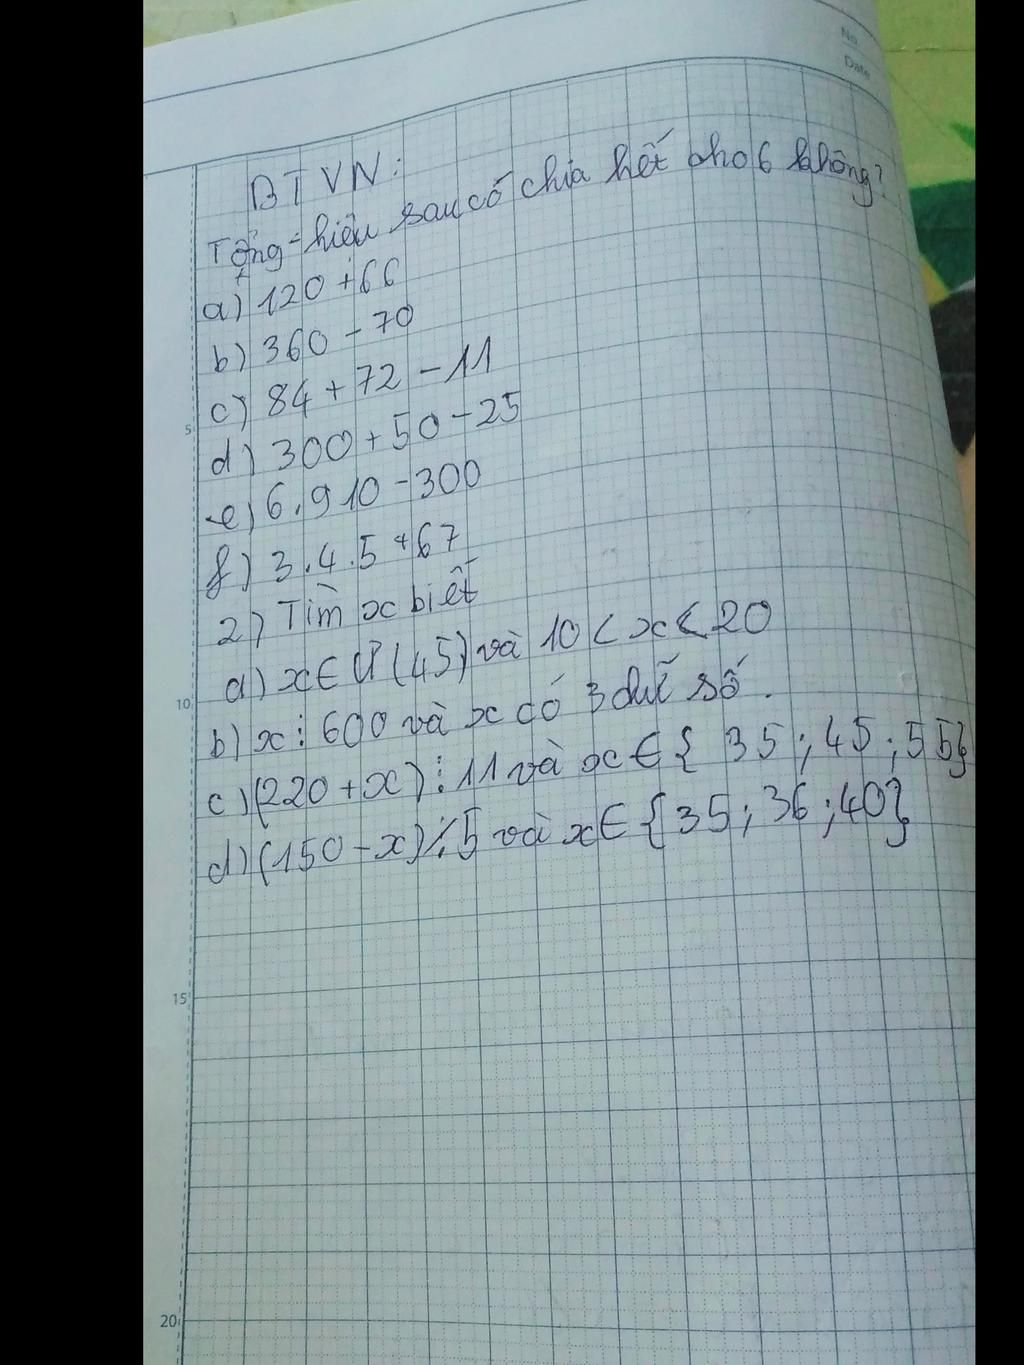 No.
Date
BTVN:
Tổng - hiệu sau có chia hết cho 6 không?
a) 120 + 66
b) 360 - 70
c) 84 + 72 - 11
d) 300 + 50 - 25
e) 6.910 - 300
f) 3.4.5 + 67
2) Tìm x biết
a) x ∈ Ư(45) và 10 < x < 20
b) x ⋮ 600 và x có 3 chữ số.
c) (220 + x) ⋮ 11 và x ∈ { 35 ; 45 ; 55}
d) (150 - x) ⋮̸ 5 và x ∈ {35 ; 36 ; 40}
5
10
15
20